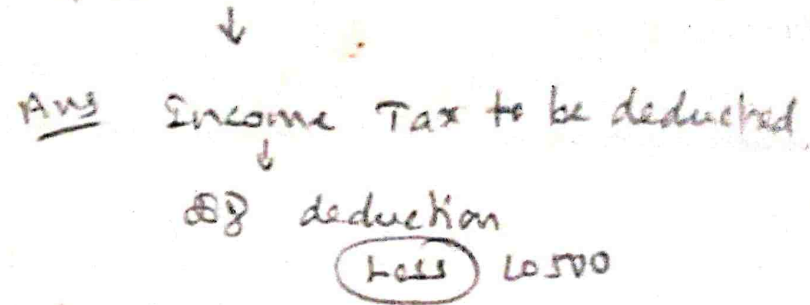 ↓
Ans Income Tax to be deducted.
↓
deduction
Loss 10500